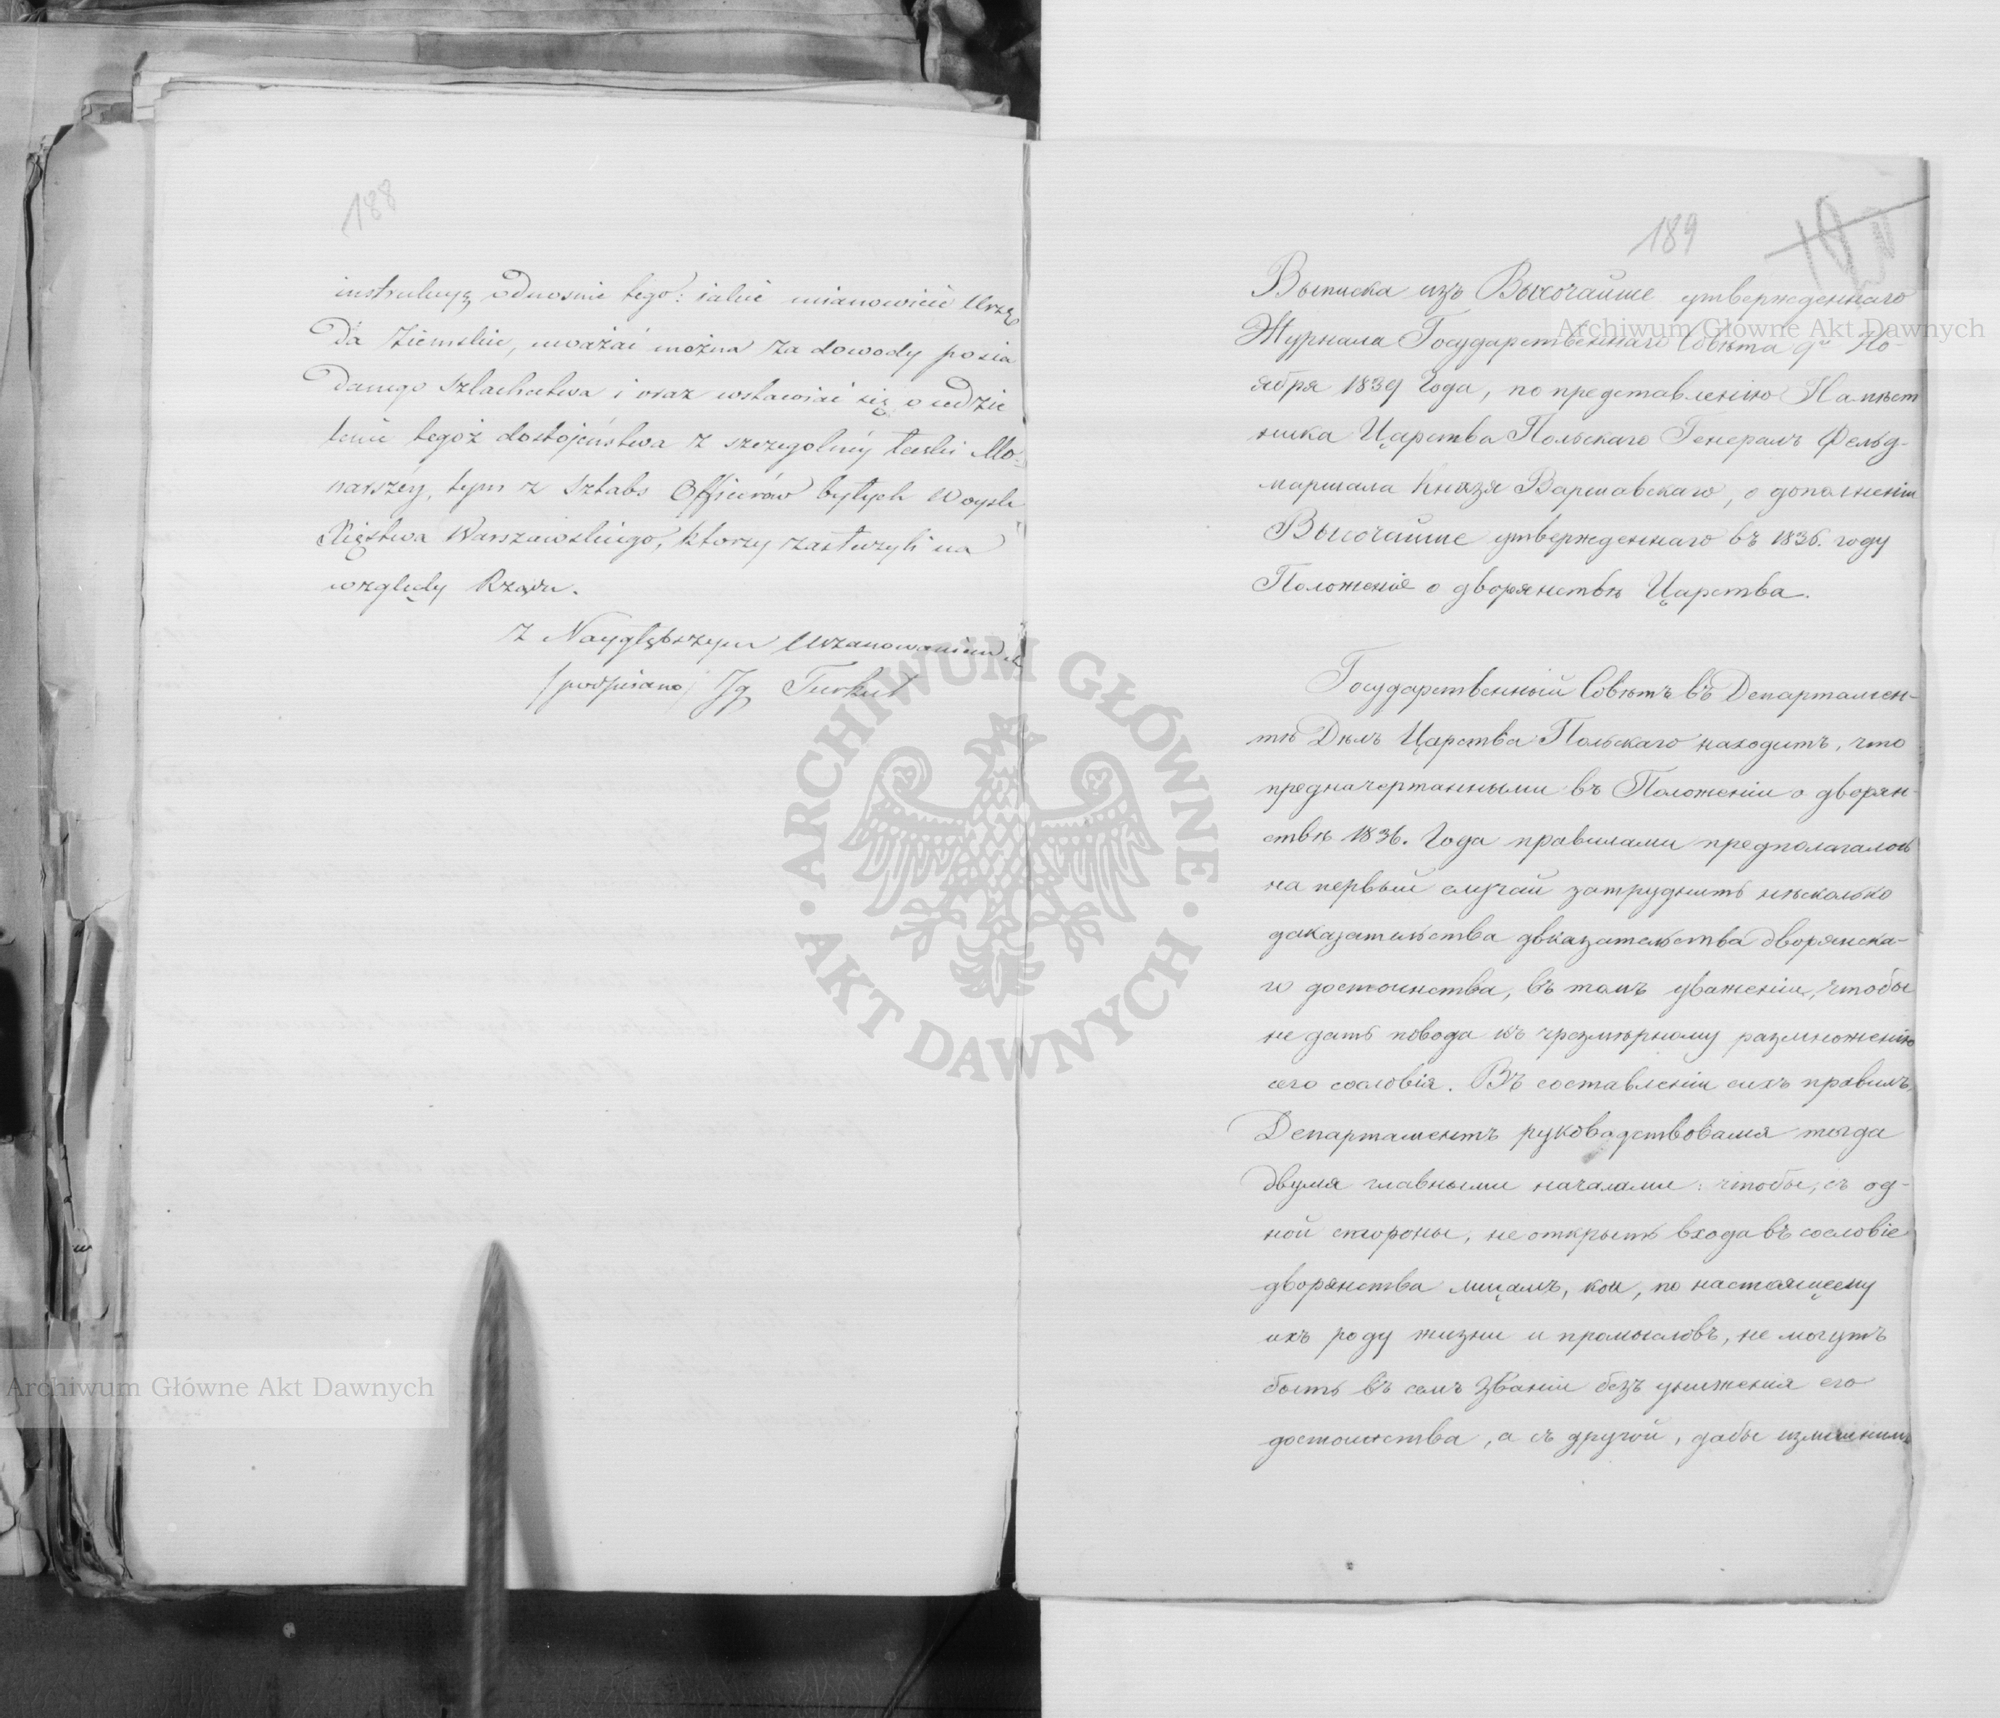 188
instrukcyą odnośnie tego: iakie mianowicie Urzę
da Ziemskie, uważać można za dowody posia
danego Szlachectwa i oraz wstawiać się o udzie
lenie tegoż dostojeństwa z szczególnéy łaski Mo-
narszéy, tym z Sztabs Officerów byłych Woysk
Xięstwa Warszawskiego, którzy zasłużyli na
względy Rządu.
z Naygłębszym Uszanowaniem
/podpisano/ Ig Turkuł
189
Выписка изъ Высочайше утвержденнаго
Журнала Государственнаго Совѣта 9го Но-
ября 1839 Года, по представленію Намѣст
ника Царства Польскаго Генералъ Фельд-
маршала Князя Варшавскаго, о дополненіи
Высочайше утвержденнаго въ 1836. году
Положенія о дворянствѣ Царства.
Государственный Совѣтъ въ Департамен-
тѣ Дѣлъ Царства Польскаго находитъ, что
предначертанными въ Положеніи о дворян-
ствѣ 1836. Года правилами предполагалось
на первый случай затруднить нѣсколько
доказательства доказательства дворянска-
го достоинства, въ томъ уваженіи, чтобы
не дать повода къ чрезмѣрному размноженію
сего сословія. Въ составленіи сихъ правилъ,
Департаментъ руководствовался тогда
двумя главными началами: чтобы, съ од-
ной стороны, не открыть входа въ сословіе
дворянства лицамъ, кои, по настоящему
ихъ роду жизни и промысловъ, не могутъ
быть въ семъ званіи безъ униженія его
достоинства, а съ другой, дабы излишнимъ
Archiwum Główne Akt Dawnych
Archiwum Główne Akt Dawnych
ARCHIWUM GŁÓWNE · AKT DAWNYCH ·